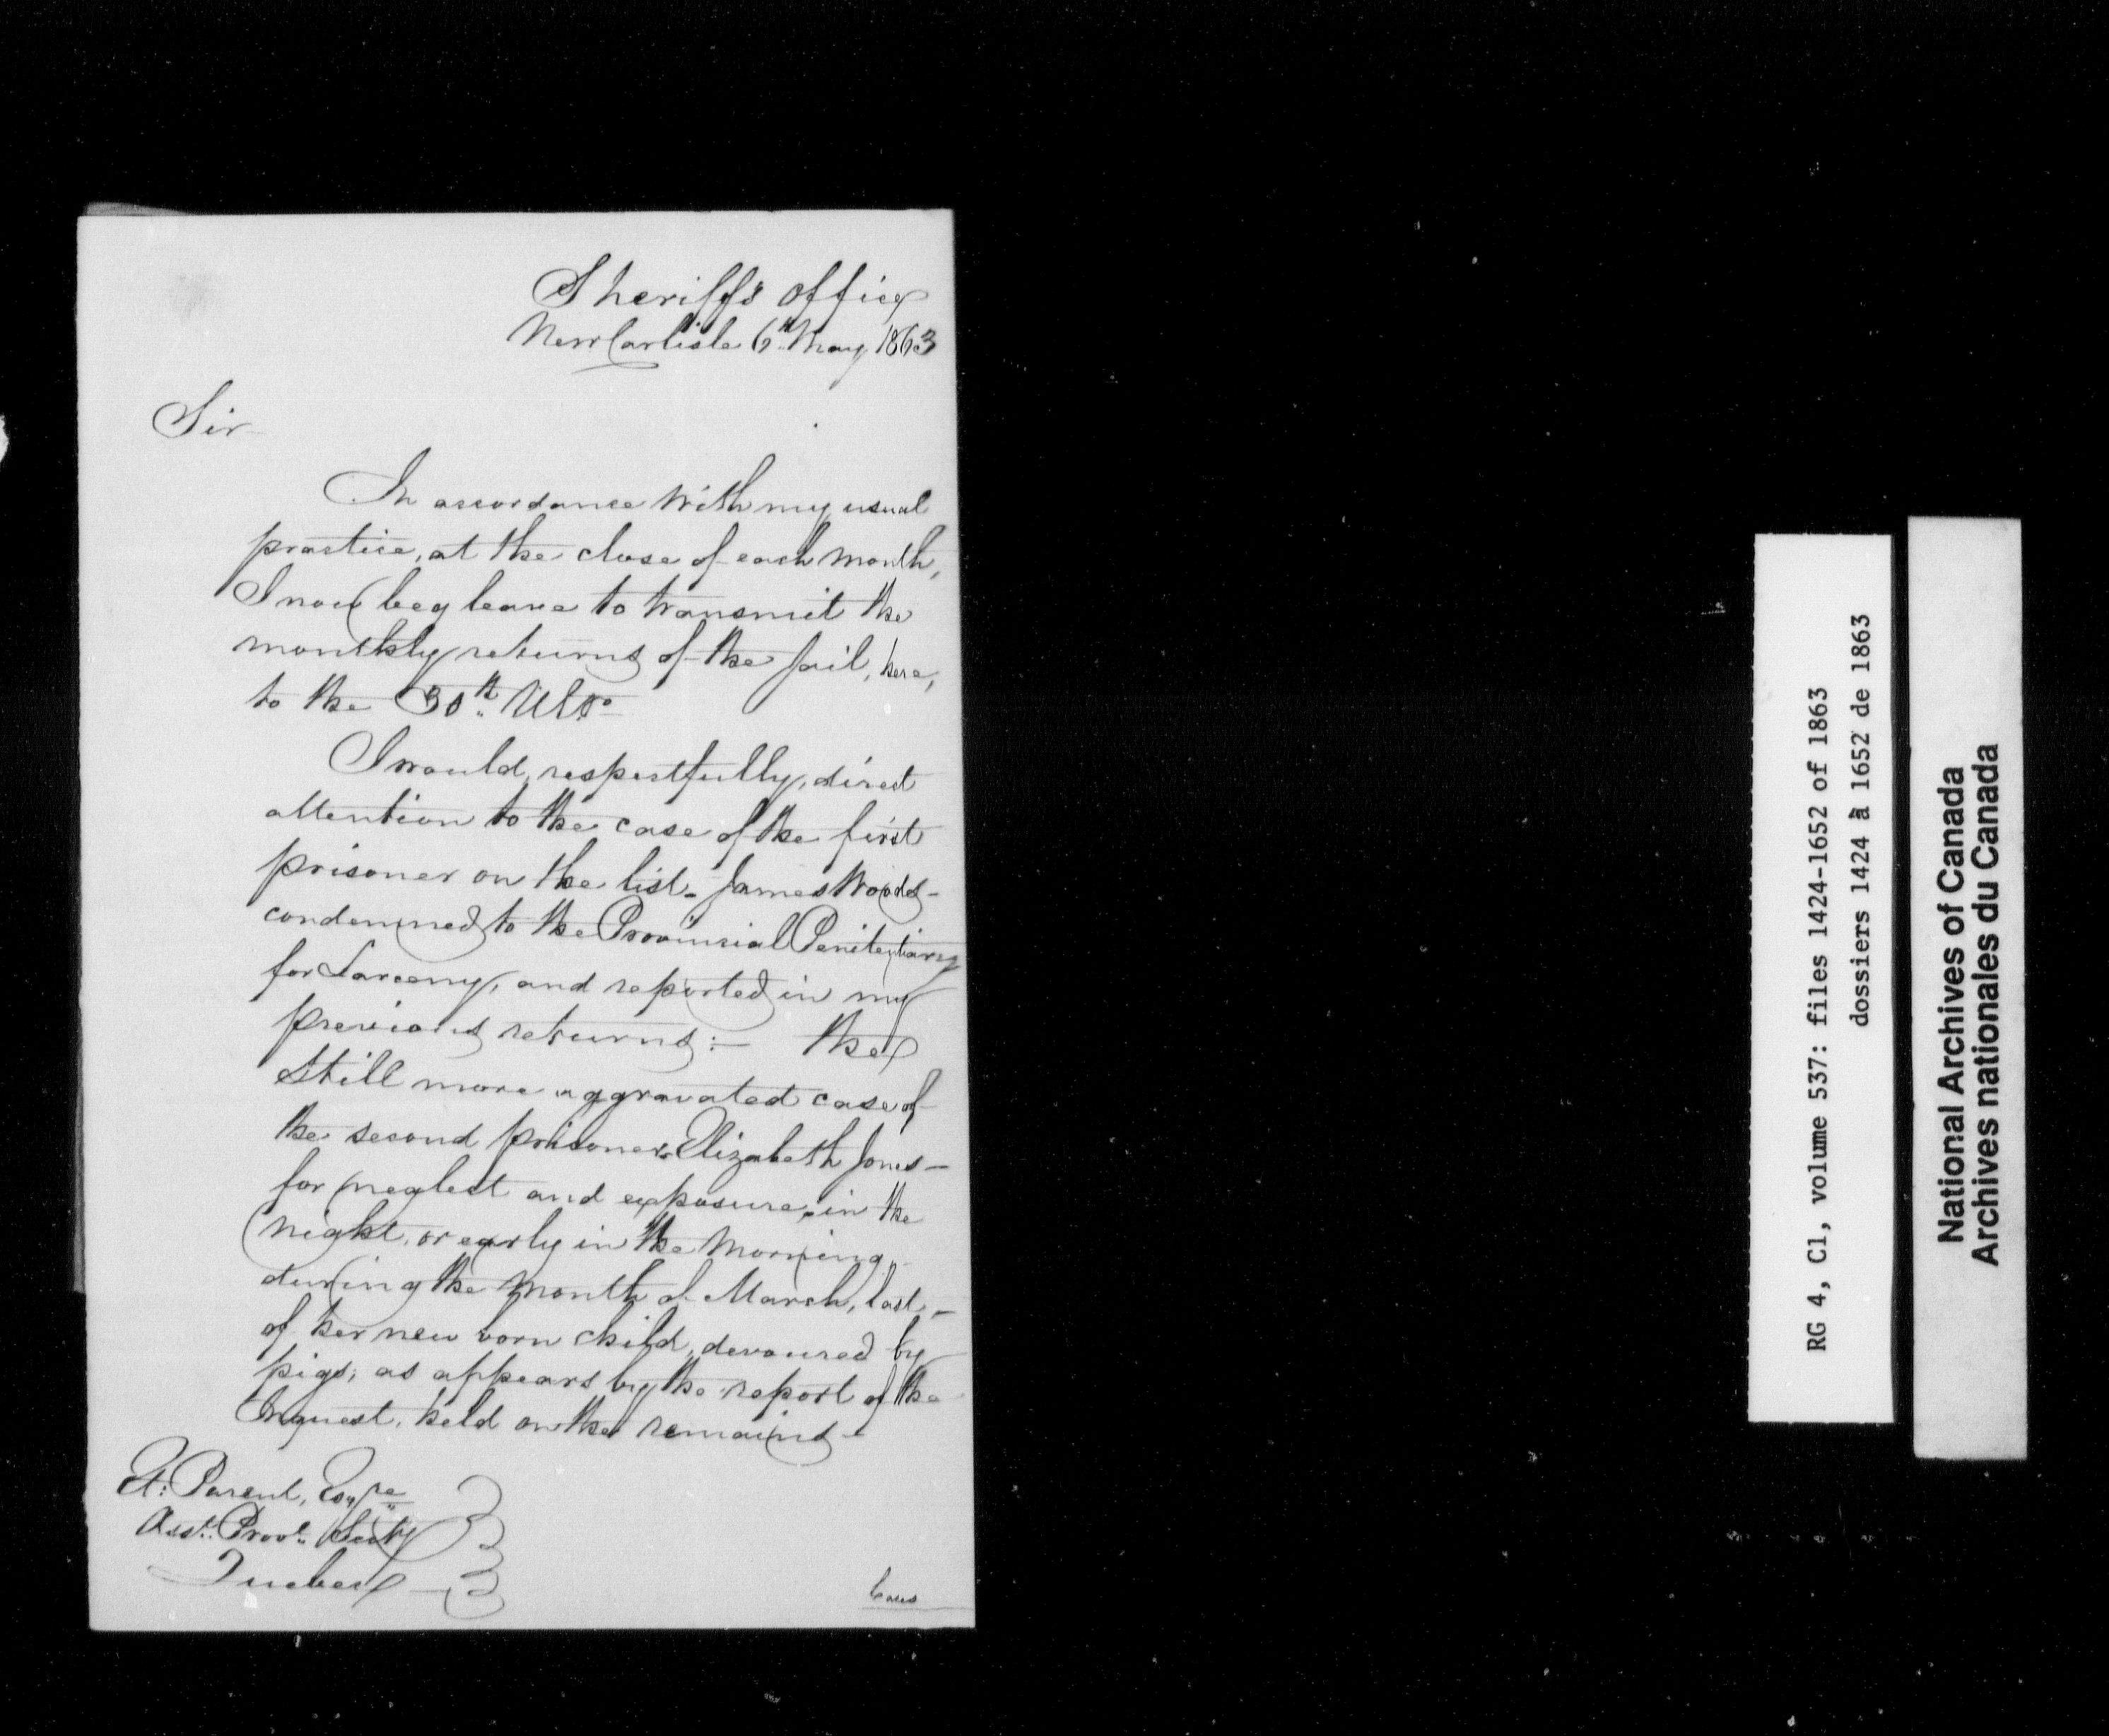 Sheriff's Office
New Carlisle 6th May 1863
Sir
In accordance with my usual
practice, at the close of each month,
I now beg leave to transmit the
monthly returns of the Jail, here,
to the 30th Ulto
I would, respectfully, direct
attention to the case of the first
prisoner on the list - James Woods -
condemned to the Provincial Penitentiary
for Larceny, and reported in my
previous returns :- the
still more aggravated case of
the second prisoner, Elizabeth Jones -
for neglect and exposure, in the
night, or early in the morning,
during the month of March, last, -
of her new born child, devoured by
pigs, as appears by the report of the
Inquest, held on the remains -
Et: Parent, Esqre
Asst. Provl. Secty
Quebec
Cases
RG 4, C1, volume 537: files 1424-1652 of 1863
dossiers 1424 à 1652 de 1863
National Archives of Canada
Archives nationales du Canada